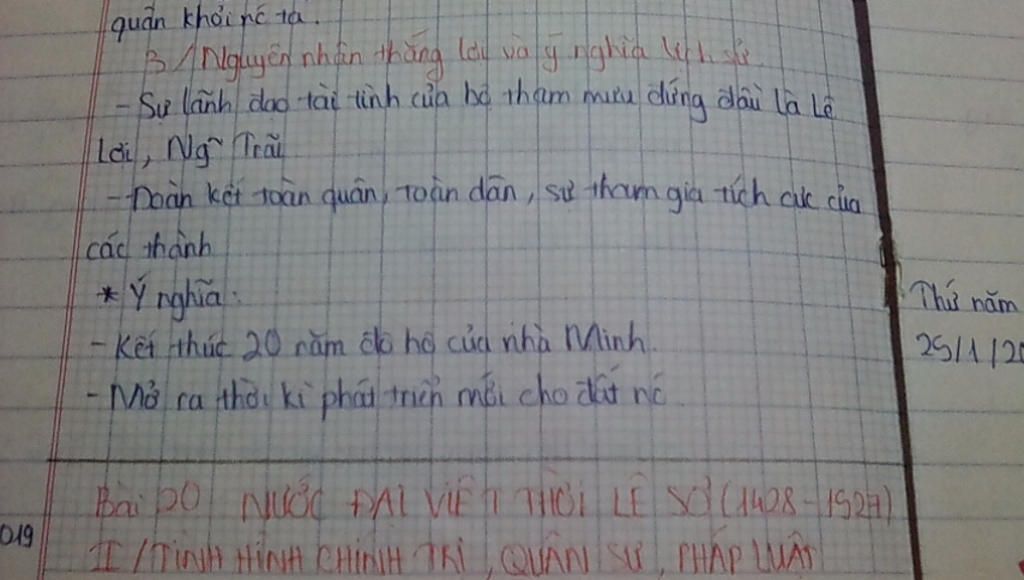 quân khỏi nc ta.
3/ Nguyên nhân thắng lợi và ý nghĩa lịch sử.
- Sự lãnh đạo tài tình của bộ tham mưu đứng đầu là Lê
Lợi, Ng~ Trãi
- Đoàn kết toàn quân, toàn dân, sự tham gia tích cực của
các thành
* Ý nghĩa:
- Kết thúc 20 năm đô hộ của nhà Minh.
- Mở ra thời kì phát triển mới cho đất nc.
Thứ năm
25/1/20
Bài 20 NƯỚC ĐẠI VIỆT THỜI LÊ SƠ (1428-1527)
019
I/ TÌNH HÌNH CHÍNH TRỊ, QUÂN SỰ, PHÁP LUẬT